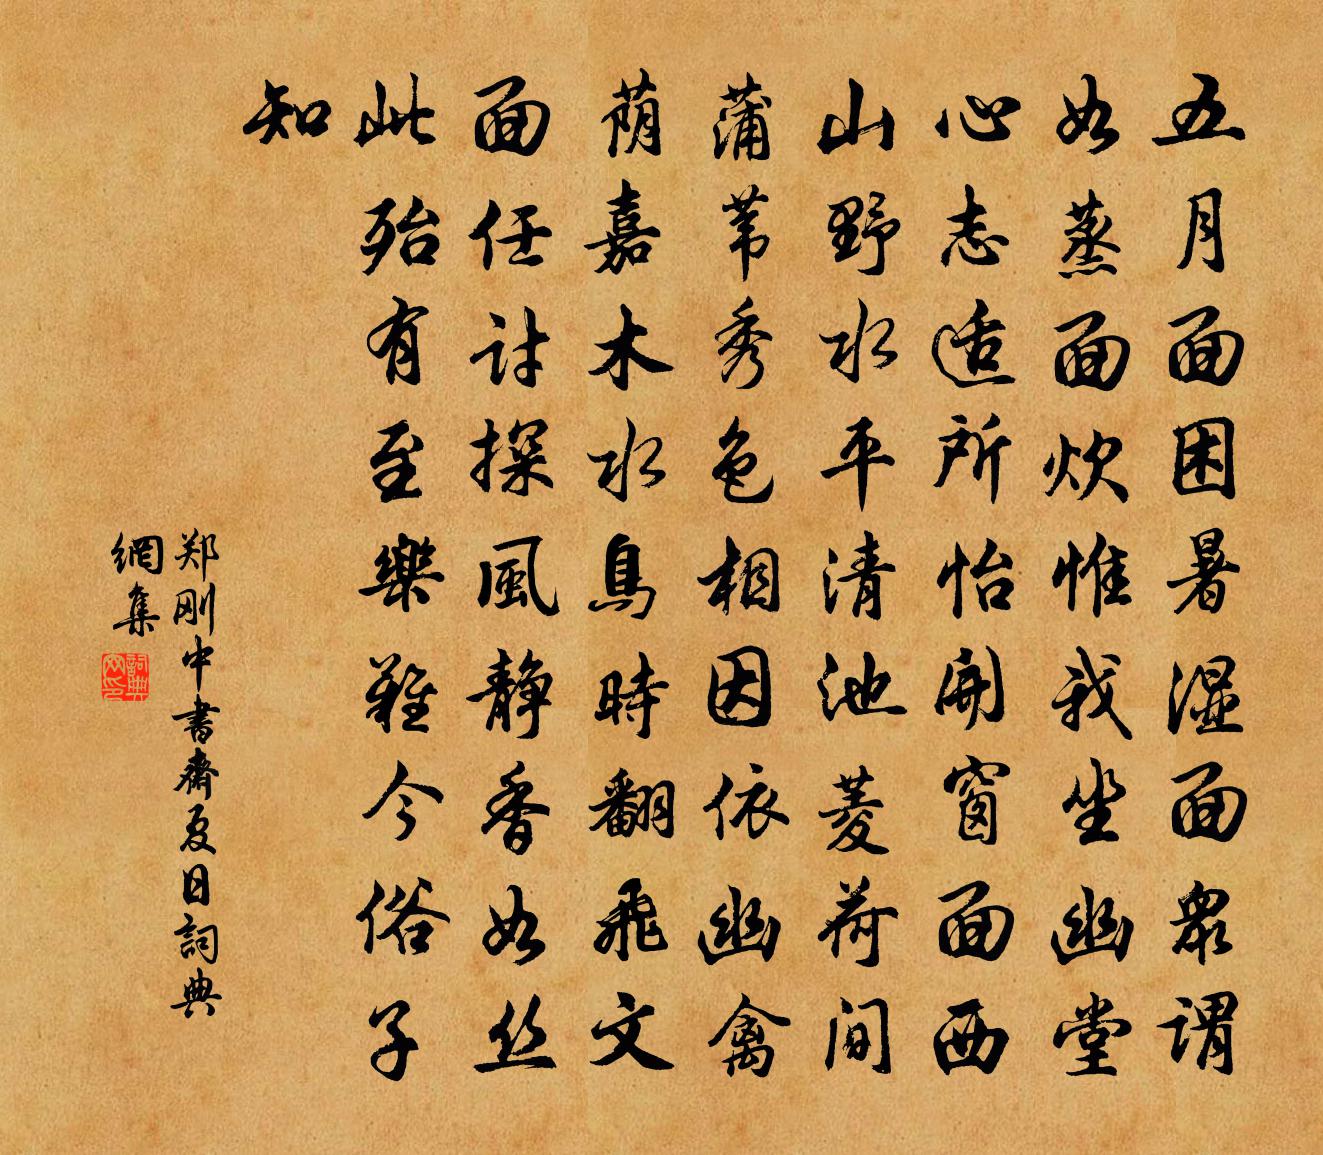 五月面困暑湿面衆谓
如蒸面炊惟我坐幽堂
心志适所怡開窗面西
山野水平清池菱荷間
蒲苇秀色相因依幽禽
荫嘉木水鳥時翻飛文
面任讨探風静香如丝
此殆有至樂難今俗子
知
郑刚中書齋夏日詞典
網集
詞典网印